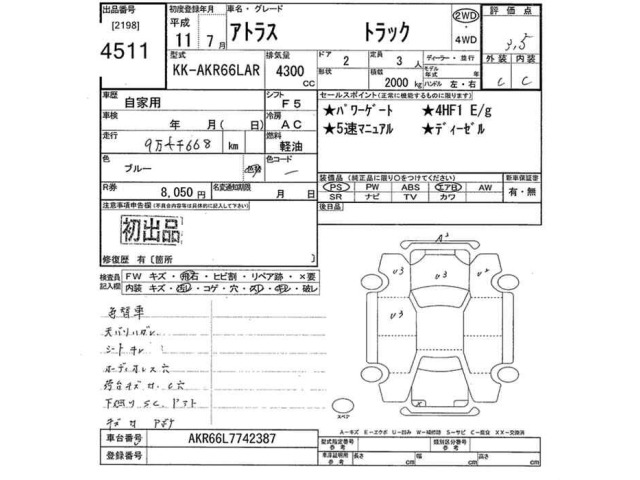 出品番号 初度登録年月 車名・グレード 評価点
[2198] 平成 アトラス トラック 2WD 3,5
4511 11年 7月 ・4WD
型式 排気量 ドア 2 定員 3人 ディーラー・並行 外装 内装
KK-AKR66LAR 4300cc 形状 積載 2000kg モデル年式 年 ハンドル 左・右 C C
車歴 自家用 シフト F5 セールスポイント(正常に機能するものに限ります)
車検 年 月( 日) 冷房 AC ★パワーゲート ★4HF1 E/g
走行 9万7千668 km 燃料 軽油 ★5速マニュアル ★ディーゼル
色 ブルー 色替 色コード
装備品(純正品に限り○をつけてください) 新車保証書
R券 8,050円 名変通知期限 月 日 PS PW ABS エアB AW 有・無
SR ナビ TV カワ
注意事項申告欄(不具合内容等は具体的に記入して下さい) 後日品
初出品
修復歴 有〔箇所 〕
検査員記入欄 FW キズ・飛石・ヒビ割・リペア跡・×要
内装 キズ・汚レ・コゲ・穴・スレ・キレ・破レ
A3
U3 U3 U2
U3
色替車
天バリハガレ
シートキレ
オーディオレス穴
荷台キズ・U・C穴
下廻りSC.
X
スペア
A-キズ E-エクボ U-凹み W-補修跡 S-サビ C-腐食 XX-交換済
車台番号 AKR66L7742387 型式指定番号 参考 類別区分番号 参考
登録番号 車庫証明用 参考 長さ cm 幅 cm 高さ cm